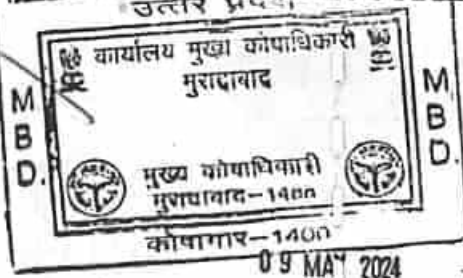 उत्तर प्रदेश
कार्यालय मुख्य कोषाधिकारी
मुरादाबाद
M
B
D.
M
B
D.
मुख्य कोषाधिकारी
मुरादाबाद-1400
कोषागार-1400
09 MAY 2024